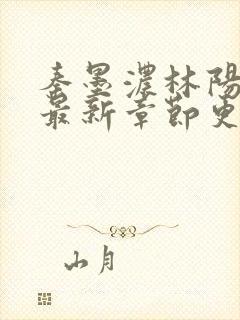 秦墨濃林陽
最新章節更
山月